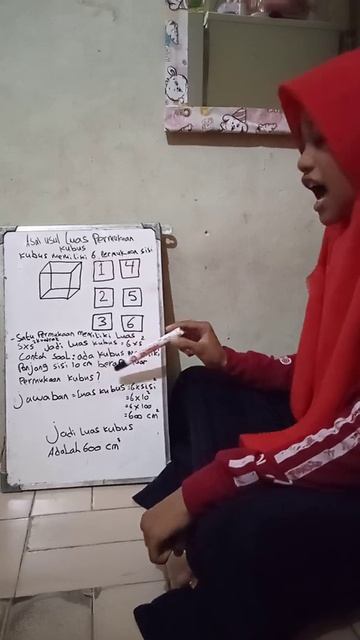 Asal usul Luas Permukaan
kubus
kubus memiliki 6 permukaan sisi
1 4
2 5
3 6
- Satu Permukaan memiliki luas
sxs jadi luas kubus = 6xs²
Contoh Soal: ada kubus
Panjang sisi 10 cm
Permukaan kubus?
Jawaban = Luas kubus = 6xsisi²
= 6x10²
= 6x100
= 600 cm²
Jadi luas kubus
Adalah 600 cm²